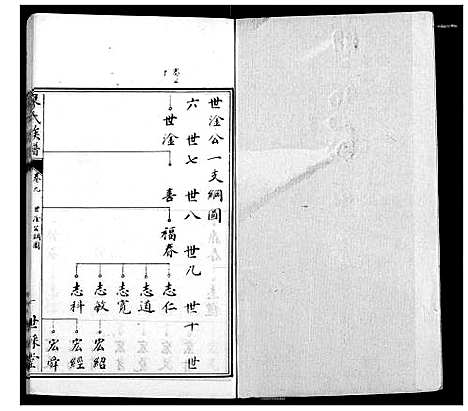 世淦公一支綱圖
六世 七世 八世 九世 十世
世淦
喜
福春
志仁
志道
志寬
志敏
志科
宏紹
宏經
宏舜
氏族譜
卷九
世淦公綱圖
一
世 堂